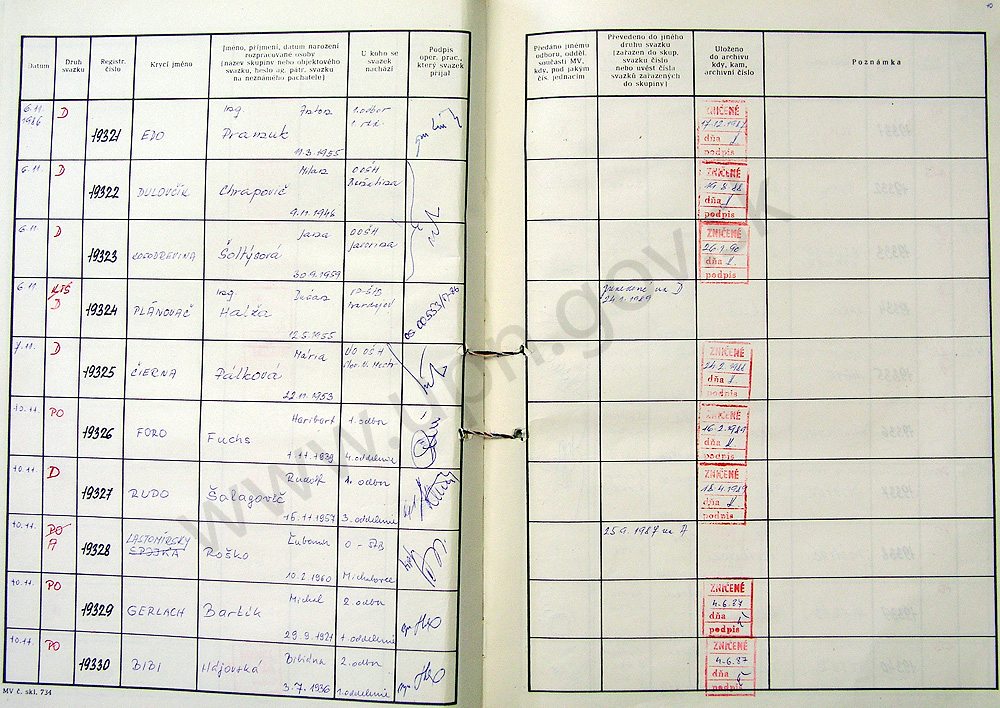 10
Datum
Druh svazku
Registr. číslo
Krycí jméno
Jméno, příjmení, datum narození rozpracované osoby
(název skupiny nebo objektového svazku, heslo ag. pátr. svazku na neznámého pachatele)
U koho se svazek nachází
Podpis oper. prac., který svazek přijal
Předáno jinému odboru, odděl. součásti MV, kdy, pod jakým čís. jednacím
Převedeno do jiného druhu svazku (zařazen do skup. svazku číslo nebo uvést čísla svazků zařazených do skupiny)
Uloženo do archivu kdy, kam, archivní číslo
Poznámka
6.11. 1986 D 19321 EDO Ing. Pramuk 11.3.1955 1. odbor
ZNIČENÉ
dňa
podpis
6.11. D 19322 Milan Chrapovič 9.11.1946 OOŠH
ZNIČENÉ
dňa
podpis
6.11. D 19323 KOSODREVINA Jana Šoltýsová 30.9.1959 OOŠH Javorina
ZNIČENÉ
26.1.90
dňa
podpis
6.11. D 19324 PLÁNOVAČ Ing. Dušan Halža 12.5.1955 Bardejov
na D 24.1.1989
7.11. D 19325 ČIERNA Mária Pálková 22.11.1953 OOŠH
ZNIČENÉ
dňa
podpis
10.11. PO 19326 FORO Fuchs 1.11.1939 1. odbor 4. oddelenie
ZNIČENÉ
16.2.1989
dňa
podpis
10.11. D 19327 RUDO Rudolf Šalagovič 15.11.1957 1. odbor 3. oddelenie
ZNIČENÉ
dňa
podpis
10.11. PO A 19328 LASTOMÍRSKY SPOJKA Ľubomír Roško 10.2.1960 Michalovce
25.9.1987 na A
10.11. PO 19329 GERLACH Michal Bartík 29.9.1921 2. odbor 1. oddelenie
ZNIČENÉ
4.6.87
dňa
podpis
10.11. PO 19330 BIBI Bibiána Hájovská 3.7.1936 2. odbor 1. oddelenie
ZNIČENÉ
4.6.87
dňa
podpis
MV č. skl. 734
www.upn.gov.sk